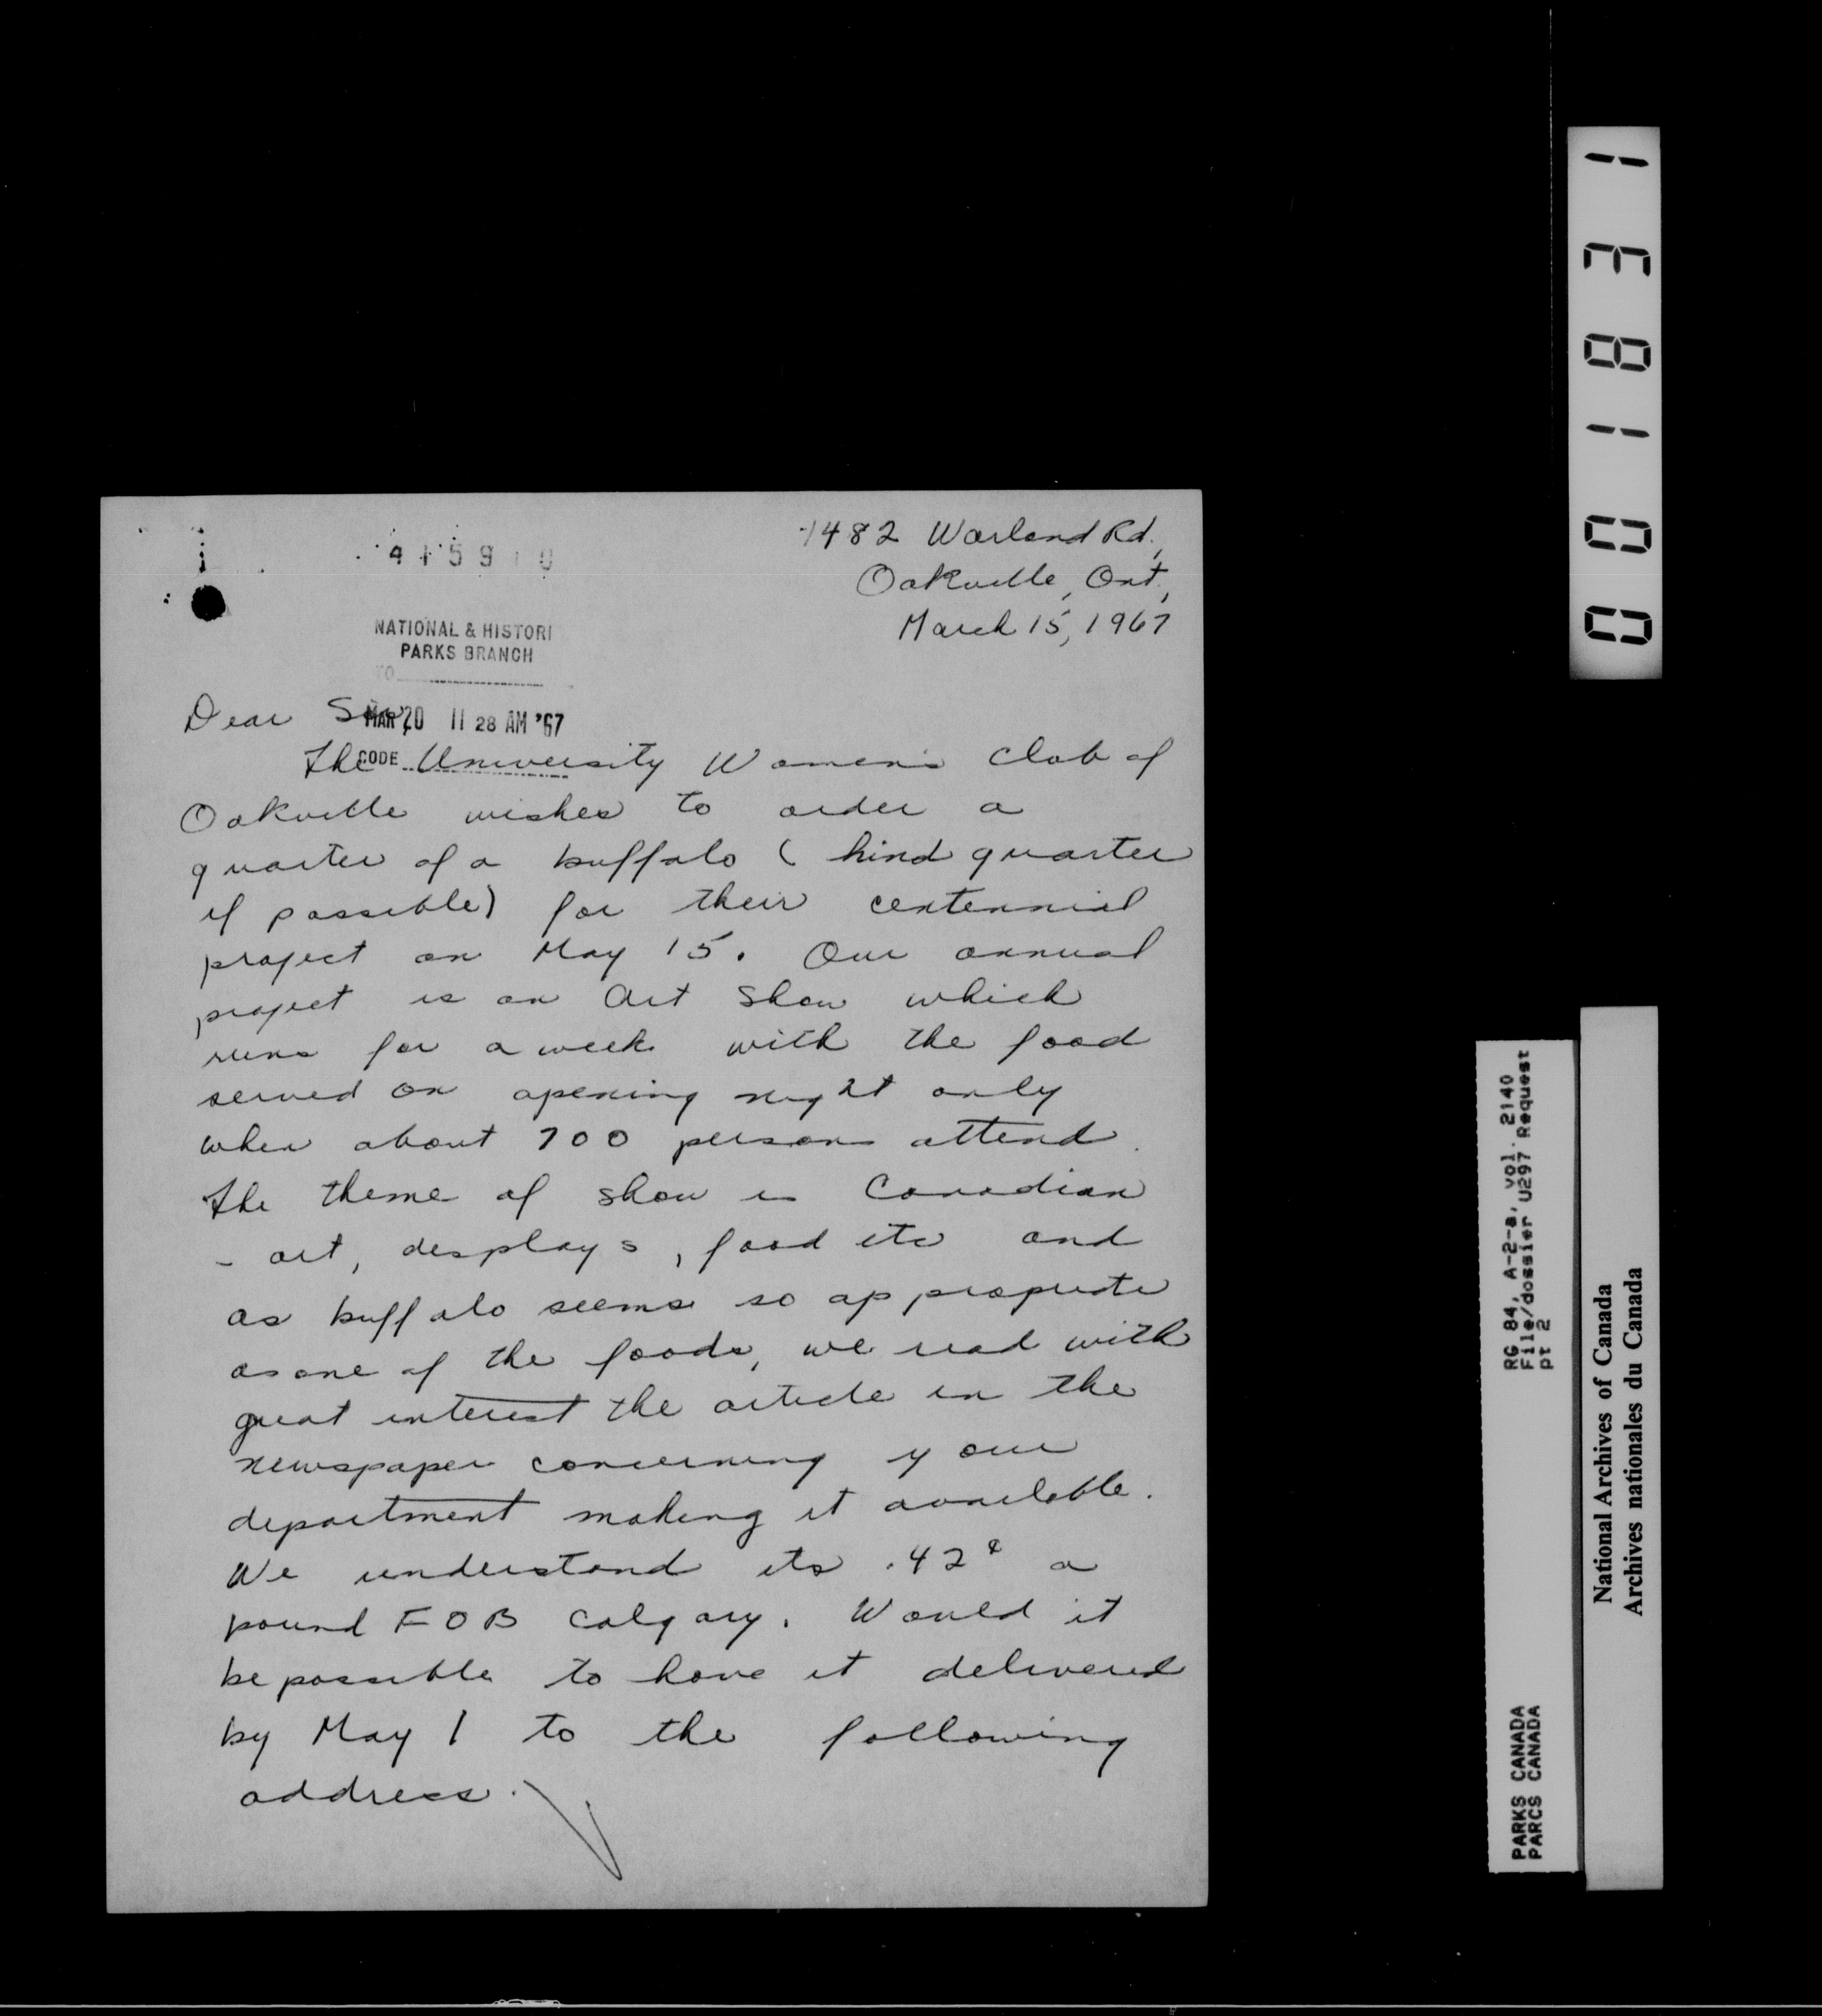 1482 Warland Rd.,
Oakville, Ont.,
March 15, 1967
NATIONAL & HISTORI
PARKS BRANCH
TO
MAR 20 11 28 AM '67
CODE
Dear Sir,
The University Women's Club of
Oakville wishes to order a
quarter of a buffalo ( hind quarter
if possible) for their centennial
project on May 15. Our annual
project is an Art Show which
runs for a week with the food
served on opening night only
when about 700 persons attend.
The theme of show is Canadian
- art, displays, food etc and
as buffalo seems so appropriate
as one of the foods, we read with
great interest the article in the
newspaper concerning your
department making it available.
We understand its .42¢ a
pound FOB Calgary. Would it
be possible to have it delivered
by May 1 to the following
address.
001831
RG 84, A-2-a, vol. 2140
File/dossier U297 Request
pt 2
PARKS CANADA
PARCS CANADA
National Archives of Canada
Archives nationales du Canada